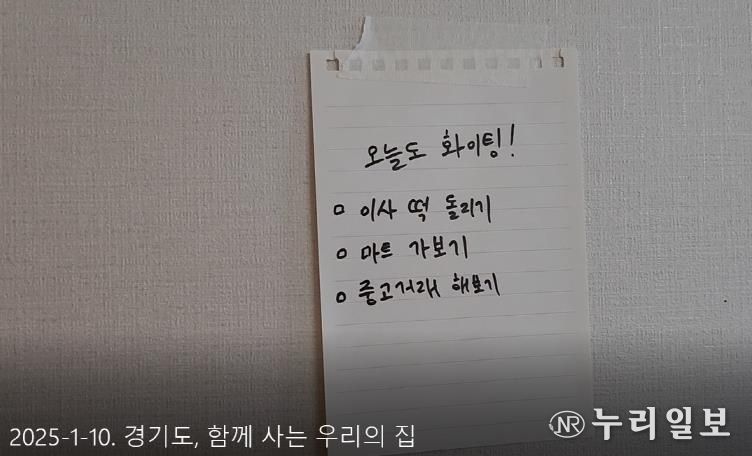 오늘도 화이팅!
이사 떡 돌리기
마트 가보기
중고거래 해보기
2025-1-10. 경기도, 함께 사는 우리의 집
NR 누리일보